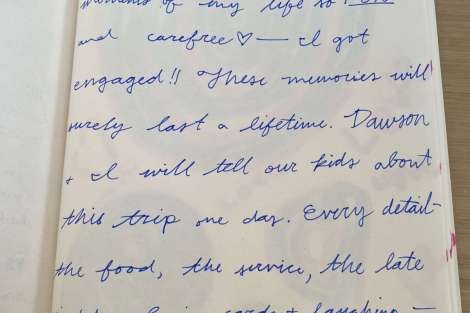 moments of my life so
and carefree♡ — I got
engaged!! These memories will
surely last a lifetime. Dawson
+ I will tell our kids about
this trip one day. Every detail-
the food, the service, the late
cards + laughing —